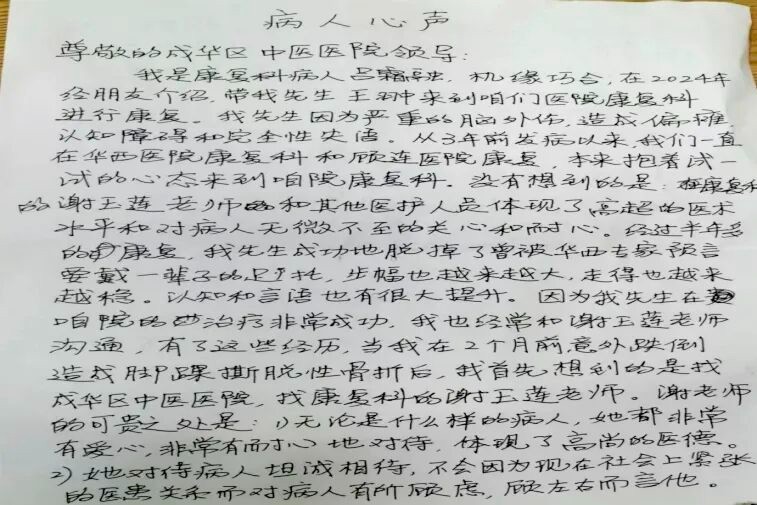 病人心声
尊敬的成华区中医医院领导:
我是康复科病人吕霜, 机缘巧合, 在2024年
经朋友介绍, 带我先生王来到咱们医院康复科
进行康复。我先生因为严重的脑外伤, 造成偏瘫,
认知障碍和完全性失语。从3年前发病以来, 我们一直
在华西医院康复科和顾连医院康复, 本来抱着试一
试的心态来到咱院康复科。没有想到的是: 康复科
的谢玉莲老师和其他医护人员体现了高超的医术
水平和对病人无微不至的关心和耐心。经过半年多
的康复, 我先生成功地脱掉了曾被华西专家预言
要戴一辈子的足托, 步幅也越来越大, 走得也越来
越稳。认知和言语也有很大提升。因为我先生在
咱院的治疗非常成功, 我也经常和谢玉莲老师
沟通, 有了这些经历, 当我在2个月前意外跌倒
造成脚踝撕脱性骨折后, 我首先想到的是找
成华区中医医院, 找康复科的谢玉莲老师。谢老师
的可贵之处是: 1)无论是什么样的病人, 她都非常
有爱心, 非常有耐心地对待, 体现了高尚的医德。
2)她对待病人坦诚相待, 不会因为现在社会上紧张
的医患关系而对病人有所顾虑, 顾左右而言他。